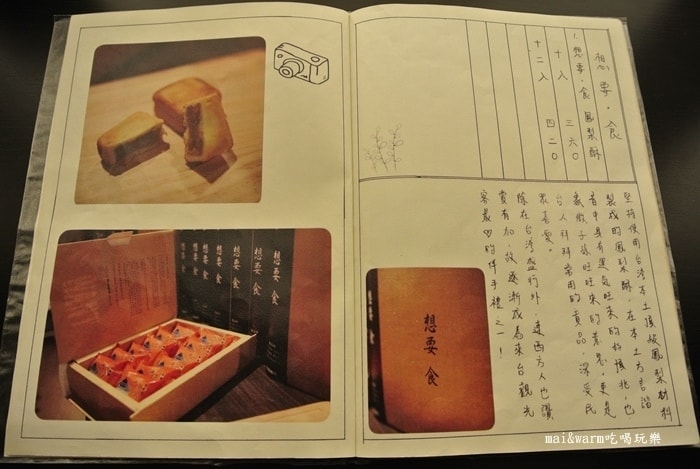 想要。食
1. 想要。食 鳳梨酥
十入 三六0
十二入 四二0
堅持使用台灣本土頂級鳳梨材料
製成的鳳梨酥，在本土方言諧
音中具有運氣旺來的好預兆，也
歲歲子孫旺旺來的意思，更是
台人拜拜常用的貢品，深受民
眾喜愛。
除在台灣盛行外，連西方人也讚
賞有加，故逐漸成為來台觀光
客最♡的伴手禮之一！
想要食
想要食
想要食
想要食
想要食
mai&warm吃喝玩樂